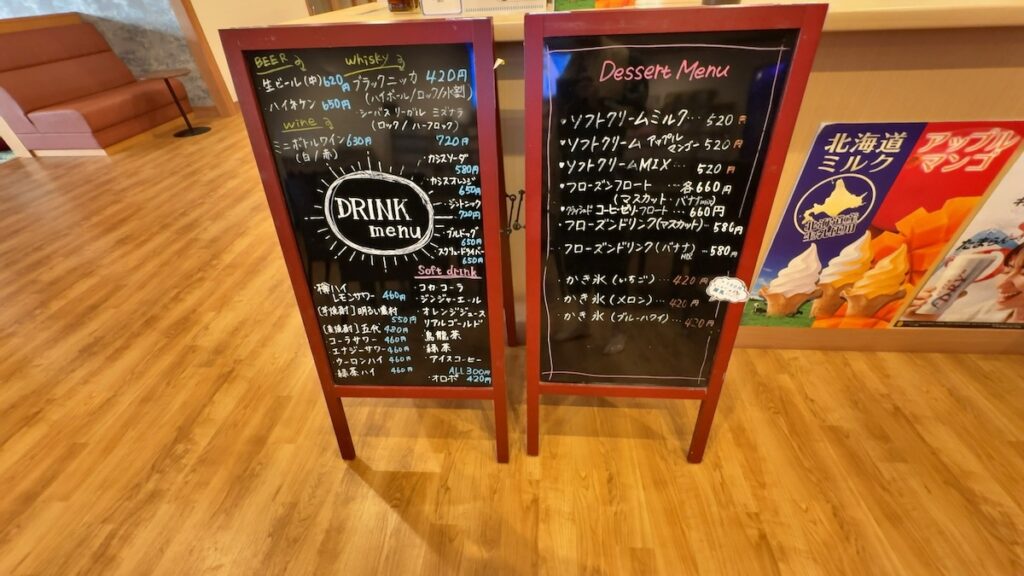 BEER
生ビール(中) 620円
ハイネケン 650円
wine
ミニボトルワイン 630円
(白/赤)
whisky
ブラックニッカ 420円
(ハイボール/ロック/水割)
シーバスリーガル ミズナラ
(ロック/ハーフロック)
720円
DRINK
menu
カシスソーダ
580円
カシスオレンジ
650円
ジントニック
720円
ブルドッグ
650円
スクリュードライバー
650円
樽ハイ
レモンサワー 460円
[芋焼酎] 明るい農村
550円
[麦焼酎] 五代 480円
コーラサワー 460円
エナジーサワー 460円
ウーロンハイ 460円
緑茶ハイ 460円
Soft drink
コカコーラ
ジンジャーエール
オレンジジュース
リアルゴールド
烏龍茶
緑茶
アイスコーヒー
ALL 300円
・オロポ 420円
Dessert Menu
・ソフトクリームミルク… 520円
・ソフトクリーム アップルマンゴー… 520円
・ソフトクリームMIX… 520円
・フローズンフロート …各660円
(マスカット バナナMIX)
コーヒーゼリーフロート… 660円
・フローズンドリンク(マスカット)… 586円
・フローズンドリンク(バナナMIX)… 580円
・かき氷(いちご)… 420円
・かき氷(メロン)… 420円
・かき氷(ブルーハワイ)… 420円
北海道
ミルク
アップル
マンゴー